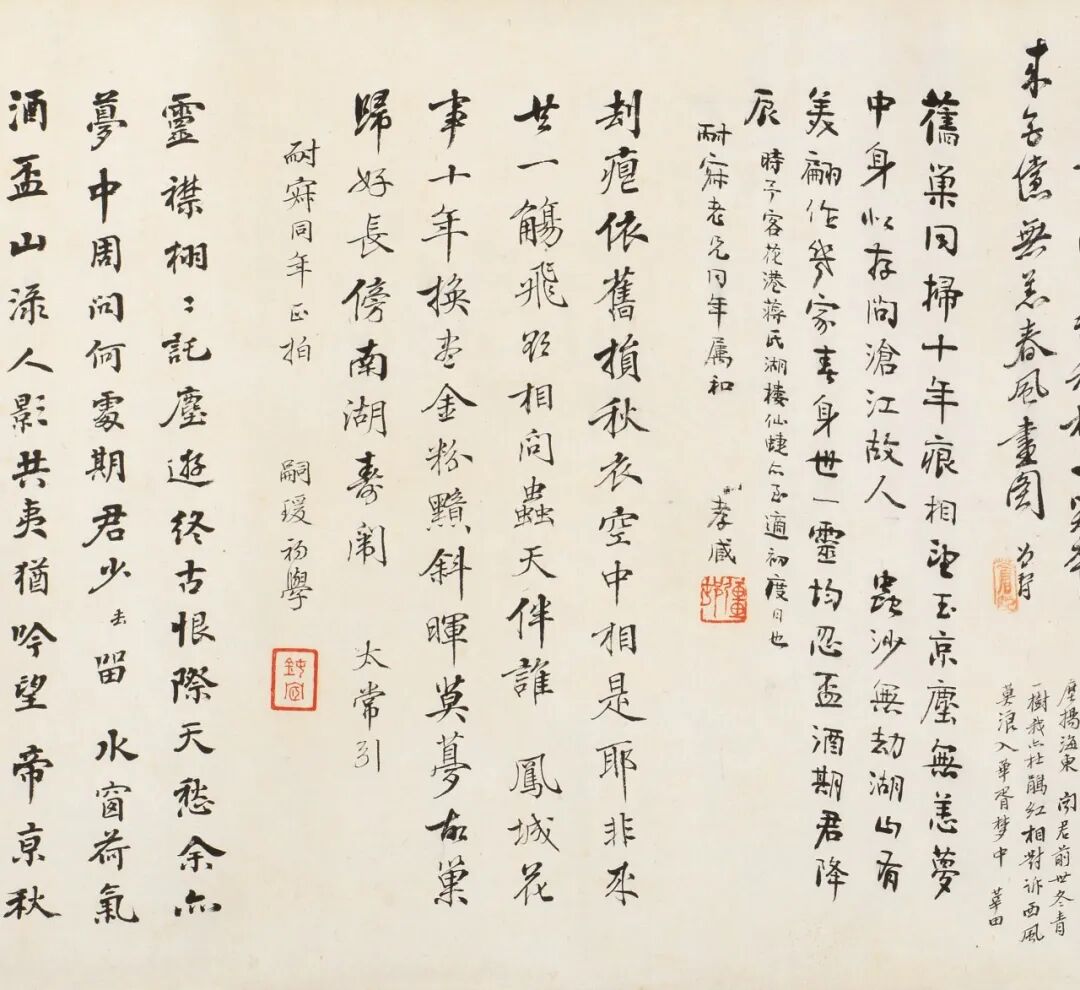 無恙春風畫圖
塵揚海東 前世冬青
一樹我亦杜鵑紅相對訴西風
莫浪入華胥夢中
舊巢同掃十年痕相望玉京塵無恙夢
中身似存問滄江故人 蟲沙無劫湖山有
美翩作幾家春身世一靈均忍盃酒期君降
辰 時予客花港蔣氏湖樓仙蜨亦至適初度日也
耐寂老兄同年属和 孝臧
彊邨
刦疤依舊損秋衣空中相是耶非來
世一觴飛欲相向蟲天伴誰 鳳城花
事十年換盡金粉黯斜暉莫夢故巢
歸好長傍南湖壽 太常引
耐寂同年正拍 嗣瑗初學
鈍宦
靈襟栩〻託塵遊終古恨際天愁余亦
夢中周問何處期君少去留 水窗荷氣
酒盃山淥人影共夷猶吟望帝京秋